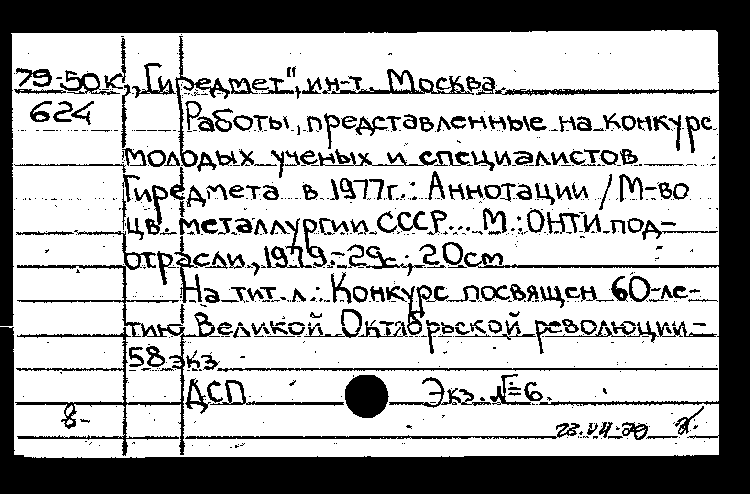 79-50К „Гиредмет", ин-т. Москва.
624 Работы, представленные на конкурс
молодых ученых и специалистов
Гиредмета в 1977г.: Аннотации / М-во
цв. металлургии СССР... М.: ОНТИ под-
отрасли, 1979.-29с.; 20см
На тит. л.: Конкурс посвящен 60-ле-
тию Великой Октябрьской революции-
58 экз
ДСП Экз. №6.
8-